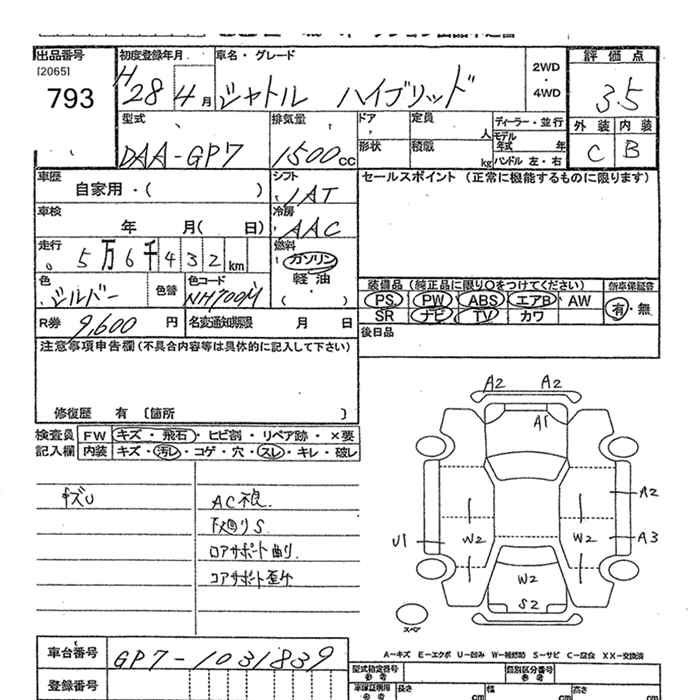 出品番号 初度登録年月 車名・グレード 2WD ・ 4WD 評価点
[2065]
793 H28 4月 シャトル ハイブリッド 3.5
型式 排気量 ドア 定員 人 ディーラー・並行 外装 内装
形状 積載 kg モデル年式 年 ハンドル 左・右
DAA-GP7 1500cc C B
車歴 自家用・( ) シフト 1AT セールスポイント (正常に機能するものに限ります)
車検 年 月( 日) 冷房 AAC
走行 5万6千432km 燃料 ガソリン 軽油 ・( )
色 シルバー 色替 色コード NH700M 装備品 (純正品に限り○をつけてください) 新車保証書
PS PW ABS エアB AW 有・無
R券 9,600円 名変通知期限 月 日 SR ナビ TV カワ
注意事項申告欄 (不具合内容等は具体的に記入して下さい) 後日品
修復歴 有 〔箇所 〕
検査員 FW キズ・飛石・ヒビ割・リペア跡・×要
記入欄 内装 キズ・汚レ・コゲ・穴・スレ・キレ・破レ
キズU AC不良
下廻りS
ロアサポート曲り
コアサポート歪ケ
A2 A2
A1
A2
U1 W2 W2 A3
W2
S2
スペア
A-キズ E-エクボ U-凹み W-補修跡 S-サビ C-腐食 XX-交換済
車台番号 GP7-1031839 型式指定番号 参考 類別区分番号 参考
登録番号 車庫証明用 参考 長さ cm 幅 cm 高さ cm